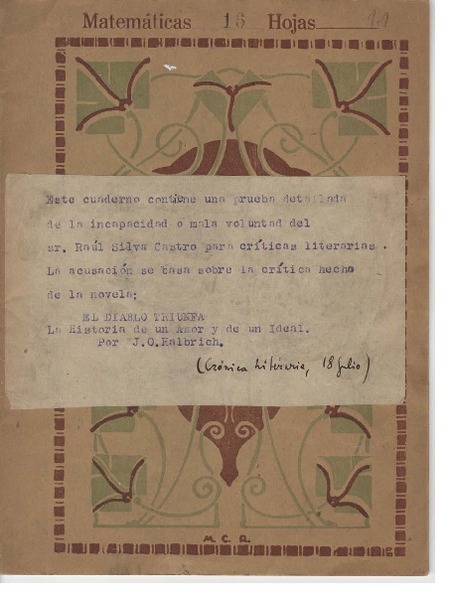 Matemáticas 16 Hojas
Este cuaderno contiene una prueba detailada
de la incapacidad o mala voluntad del
sr. Raúl Silva Castro para críticas literarias.
La acusación se basa sobre la crítica hecha
de la novela;
EL DIABLO TRIUNFA
La Historia de un Amor y de un Ideal.
Por J.O.Kalbrich.
(Crónica literaria, 18 Julio)
M. C. R.